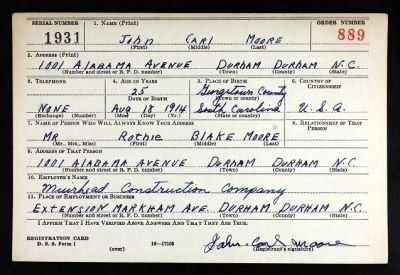 SERIAL NUMBER 1. Name (Print) ORDER NUMBER
1931 John Carl Moore 889
(First) (Middle) (Last)
2. Address (Print)
1001 Alabama Avenue Durham Durham N.C.
(Number and street or R. F. D. number) (Town) (County) (State)
3. Telephone 4. Age in Years 5. Place of Birth 6. Country of Citizenship
25 Georgetown County
Date of Birth (Town or county)
None Aug 18 1914 South Carolina U.S.A.
(Exchange) (Number) (Mo.) (Day) (Yr.) (State or country)
7. Name of Person Who Will Always Know Your Address 8. Relationship of That Person
Mr Rothie Blake Moore
(Mr., Mrs., Miss) (First) (Middle) (Last)
9. Address of That Person
1001 Alabama Avenue Durham Durham N.C.
(Number and street or R. F. D. number) (Town) (County) (State)
10. Employer's Name
Muirhead Construction Company
11. Place of Employment or Business
Extension Markham Ave. Durham Durham N.C.
(Number and street or R. F. D. number) (Town) (County) (State)
I Affirm That I Have Verified Above Answers and That They Are True.
REGISTRATION CARD
D. S. S. Form 1 (over) 16—17105
John Carl Moore
(Registrant's signature)